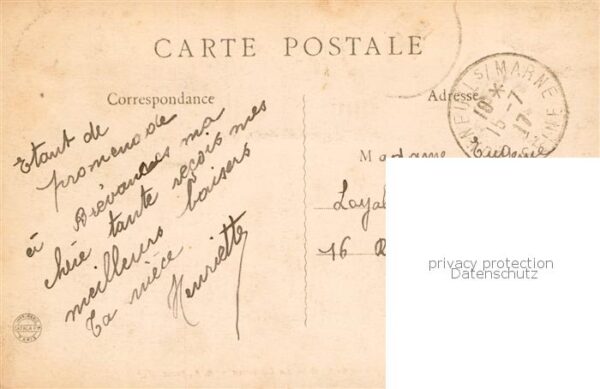 CARTE POSTALE
Correspondance
Adresse
Etant de
promenade
à Brévannes ma
chère tante reçois mes
meilleurs baisers
Ta nièce
Henriette
NEUIL S/ MARNE
10 *
15 -7
17
Madame
Loyal
16
privacy protection
Datenschutz